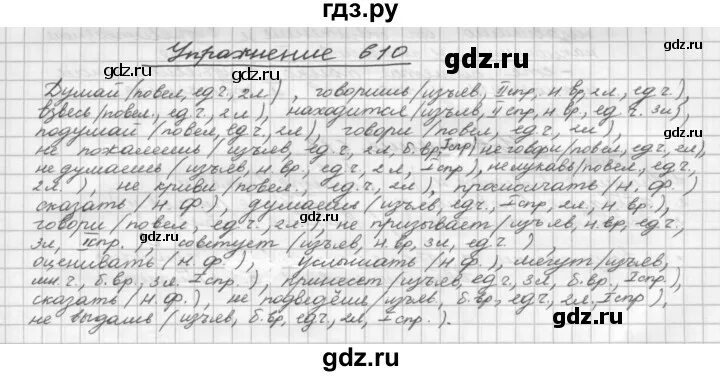 гдз.ру
Упражнение 610
gdz.ru gdz.ru
Думай (повел, ед ч, 2 л), говоришь (изъяв, II спр, н вр, 2 л, ед ч),
взвесь (повел, ед ч, 2 л), находится (изъяв, II спр, н вр, ед ч, 3 л),
подумай (повел, ед ч, 2 л), говори (повел, ед ч, 2 л),
не пожалеешь (изъяв, ед ч, 2 л, б. вр, I спр) не говори (повел, ед ч, 2 л),
не думаешь (изъяв, н. вр, ед ч, 2 л, I спр.), не лукавь (повел, ед ч,
2 л.), не криви (повел., ед. ч, 2 л), промолчать (н. ф.)
сказать (н. ф.), думаешь (изъяв, ед ч., I спр, 2 л, н. вр),
говори (повел, ед ч., 2 л.), не призывает (изъяв, н. вр, ед ч,
3 л, I спр.), советует (изъяв, н. вр, 3 л, ед ч. ),
оценивать (н. ф), услышать (н. ф), могут (изъяв,
мн. ч, б. вр, 3 л. I спр.), принесет (изъяв, ед ч, 3 л, б. вр, I спр.),
сказать (н. ф), не подведёшь (изъяв, б. вр, ед ч, 2 л, I спр),
не выдашь (изъяв, б. вр, ед ч, 2 л, I спр.).
gdz.ru gdz.ru
gdz.ru